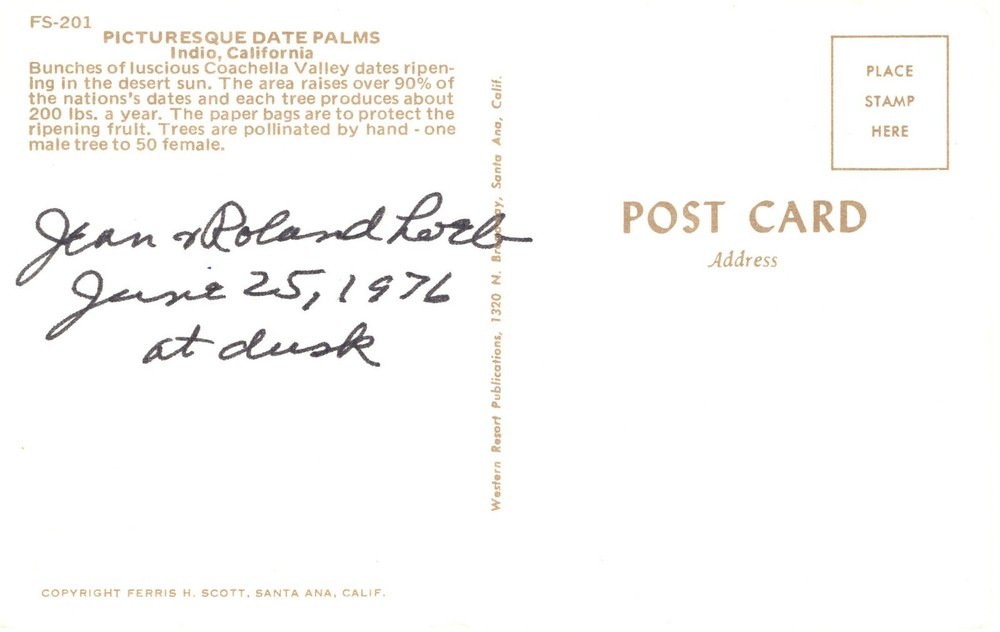 FS-201
PICTURESQUE DATE PALMS
Indio, California
Bunches of luscious Coachella Valley dates ripen-
ing in the desert sun. The area raises over 90% of
the nations's dates and each tree produces about
200 lbs. a year. The paper bags are to protect the
ripening fruit. Trees are pollinated by hand - one
male tree to 50 female.
Jean & Roland Loeb
June 25, 1976
at dusk
COPYRIGHT FERRIS H. SCOTT, SANTA ANA, CALIF.
Western Resort Publications, 1320 N. Broadway, Santa Ana, Calif.
PLACE
STAMP
HERE
POST CARD
Address